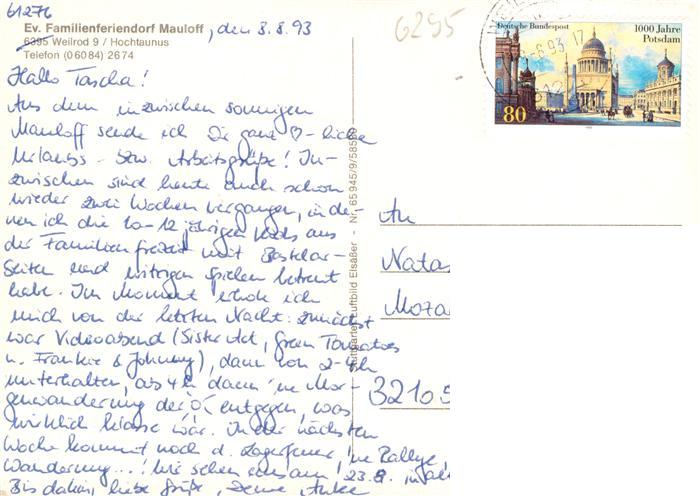 61276
Ev. Familienferiendorf Mauloff, den 8.8.93
6395 Weilrod 9 / Hochtaunus
Telefon (06084) 2674
6295
Deutsche Bundespost
1000 Jahre
Potsdam
80
Hallo Tascha!
Aus dem inzwischen sonnigen
Mauloff sende ich Dir ganz ♡-liche
Urlaubs- bzw. Arbeitsgrüße! In-
zwischen sind heute auch schon
wieder zwei Wochen vergangen, in de-
nen ich die 10-12 jährigen Kids aus
der Familienfreizeit mit Bastelar-
beiten und witzigen Spielen betreut
habe. Im Moment erhole ich
mich von der letzten Nacht: zunächst
war Videoabend (Sister Act, Green Tomatoes
u. Frankie & Johnny), dann von 2-4h
unterhalten, ab 4h dann 'ne Mor-
genwanderung der entgegen, was
wirklich klasse war. In der nächsten
Woche kommt noch d. Lagerfeuer, 'ne Rallye,
Wanderung...! Wir sehen uns am 23.8. in
Bis dahin, liebe Grüße, Deine Anke
Luftbild Elsäßer - Nr. 65945/9/58509
An
Nata
Moza
32105